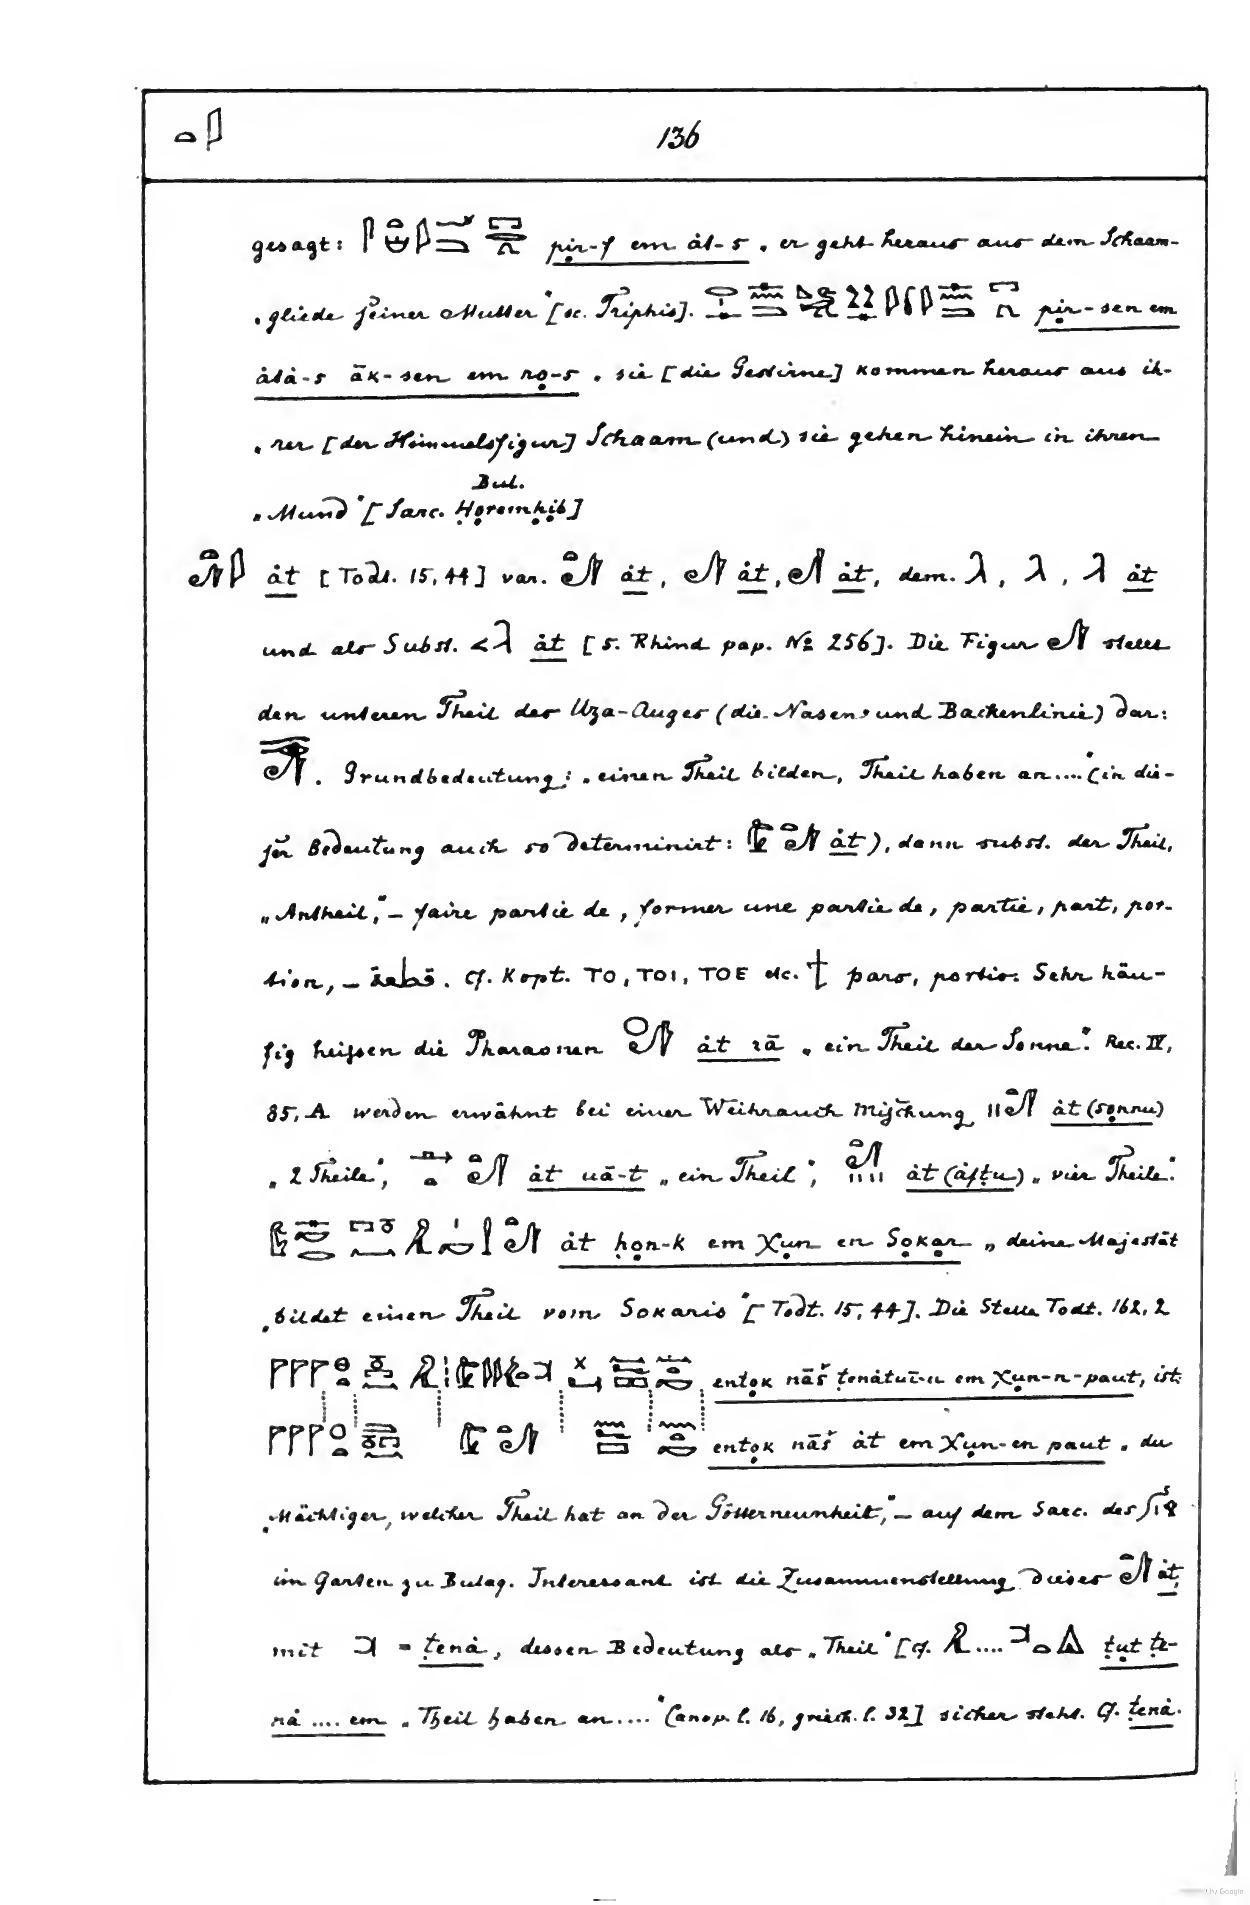 136
gesagt: pir-f em át-s „er geht heraus aus dem Schaam-
„gliede seiner Mutter“ [sc. Triphis]. pir-sen em
átá-s āk-sen em ro-s „sie [die Gestirne] kommen heraus aus ih-
„rer [der Himmelsfigur] Schaam (und) sie gehen hinein in ihren
Bul.
„Mund“ [Sarc. Horemhib]
át [Todt. 15,44] var. át, át, át, dem. át
und als Subst. át [s. Rhind pap. № 256]. Die Figur stellt
den unteren Theil des Uza-Auges (die Nasen- und Backenlinie) dar:
. Grundbedeutung: „einen Theil bilden, Theil haben an....“ (in die-
ser Bedeutung auch so determinirt: át), dann subst. der Theil,
„Antheil,“ – faire partie de, former une partie de, partie, part, por-
tion, – . Cf. Kopt. ΤΟ, ΤΟΙ, ΤΟΕ etc. † pars, portio. Sehr häu-
fig heissen die Pharaonen át rā „ein Theil der Sonne“. Rec. IV,
85, A werden erwähnt bei einer Weihrauch Mischung át (sonnu)
„2 Theile“, át uā-t „ein Theil“, át (áftu) „vier Theile“.
át hon-k em χun en Sokar „deine Majestät
„bildet einen Theil vom Sokaris“ [Todt. 15,44]. Die Stelle Todt. 162,2
entok nāš tenátui-u em χun-n-paut, ist:
entok nāš át em χun-en paut „du
„Mächtiger, welcher Theil hat an der Götterneunheit,“ – auf dem Sarc. des
im Garten zu Bulaq. Interessant ist die Zusammenstellung dieses át,
mit = tená, dessen Bedeutung als „Theil“ [cf. .... tut te-
ná .... em „Theil haben an ....“ Canop. l. 16, griech. l. 32] sicher steht. Cf. tená.